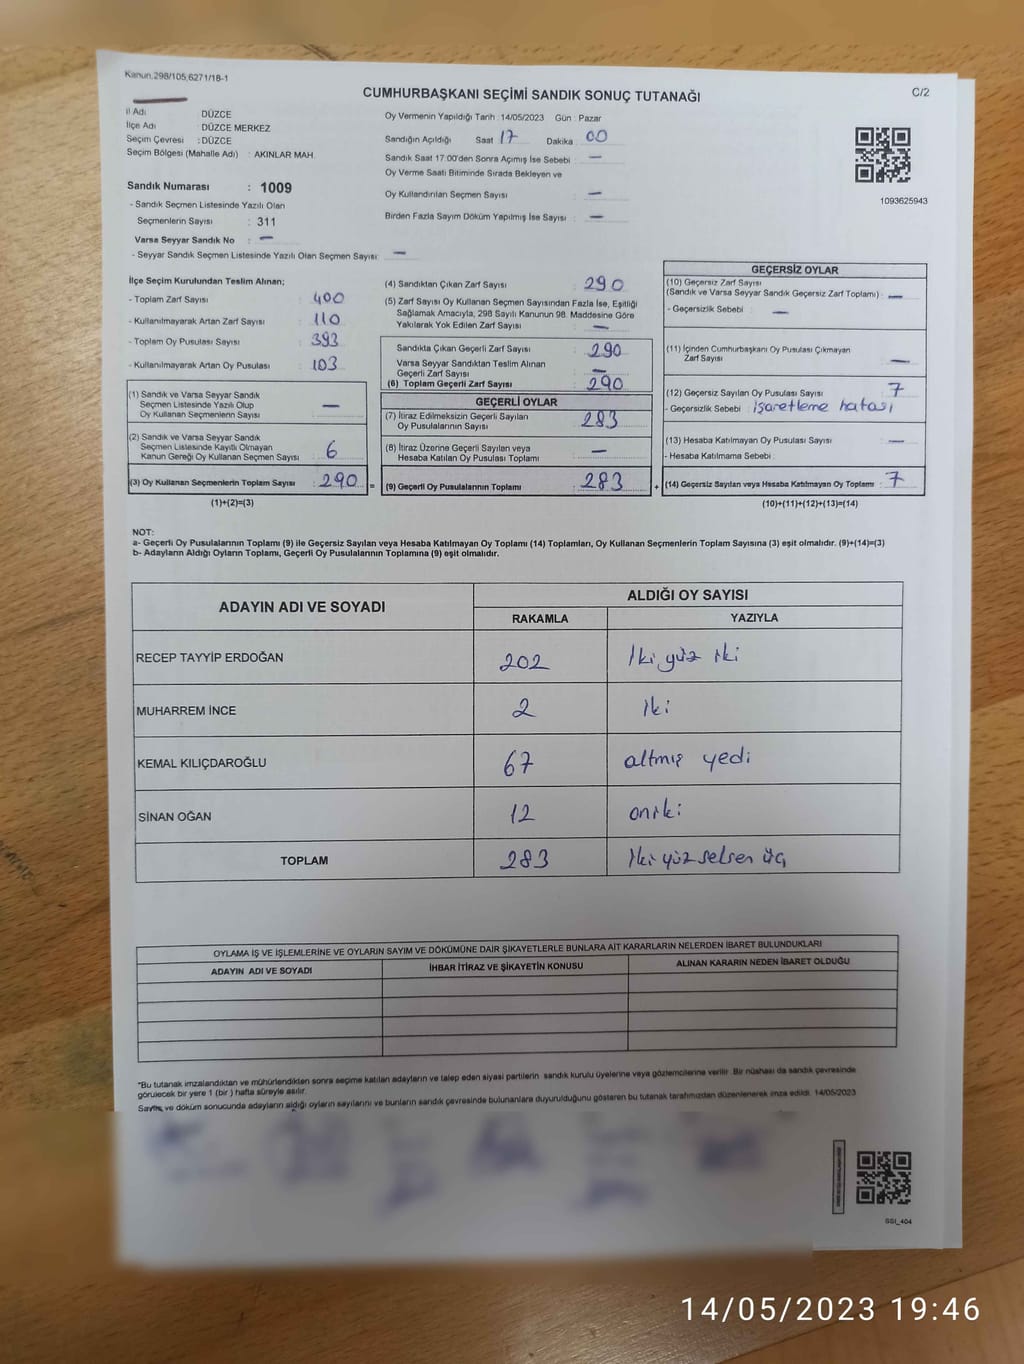 Kanun.298/105,6271/18-1
CUMHURBAŞKANI SEÇİMİ SANDIK SONUÇ TUTANAĞI
C/2
İl Adı DÜZCE
İlçe Adı DÜZCE MERKEZ
Seçim Çevresi : DÜZCE
Seçim Bölgesi (Mahalle Adı) : AKINLAR MAH.
Sandık Numarası : 1009
- Sandık Seçmen Listesinde Yazılı Olan
Seçmenlerin Sayısı : 311
Varsa Seyyar Sandık No : —
- Seyyar Sandık Seçmen Listesinde Yazılı Olan Seçmen Sayısı: —
Oy Vermenin Yapıldığı Tarih : 14/05/2023 Gün : Pazar
Sandığın Açıldığı Saat 17 Dakika 00
Sandık Saat 17:00'den Sonra Açımış İse Sebebi : —
Oy Verme Saati Bitiminde Sırada Bekleyen ve
Oy Kullandırılan Seçmen Sayısı : —
Birden Fazla Sayım Döküm Yapılmış İse Sayısı : —
1093625943
İlçe Seçim Kurulundan Teslim Alınan;
- Toplam Zarf Sayısı : 400
- Kullanılmayarak Artan Zarf Sayısı : 110
- Toplam Oy Pusulası Sayısı : 393
- Kullanılmayarak Artan Oy Pusulası : 103
(1) Sandık ve Varsa Seyyar Sandık
Seçmen Listesinde Yazılı Olup
Oy Kullanan Seçmenlerin Sayısı : —
(2) Sandık ve Varsa Seyyar Sandık
Seçmen Listesinde Kayıtlı Olmayan
Kanun Gereği Oy Kullanan Seçmen Sayısı : 6
(3) Oy Kullanan Seçmenlerin Toplam Sayısı : 290 =
(1)+(2)=(3)
(4) Sandıktan Çıkan Zarf Sayısı : 290
(5) Zarf Sayısı Oy Kullanan Seçmen Sayısından Fazla İse, Eşitliği
Sağlamak Amacıyla, 298 Sayılı Kanunun 98. Maddesine Göre
Yakılarak Yok Edilen Zarf Sayısı : —
Sandıkta Çıkan Geçerli Zarf Sayısı : 290
Varsa Seyyar Sandıktan Teslim Alınan
Geçerli Zarf Sayısı : —
(6) Toplam Geçerli Zarf Sayısı : 290
GEÇERLİ OYLAR
(7) İtiraz Edilmeksizin Geçerli Sayılan
Oy Pusulalarının Sayısı : 283
(8) İtiraz Üzerine Geçerli Sayılan veya
Hesaba Katılan Oy Pusulası Toplamı : —
(9) Geçerli Oy Pusulalarının Toplamı : 283 +
GEÇERSİZ OYLAR
(10) Geçersiz Zarf Sayısı
(Sandık ve Varsa Seyyar Sandık Geçersiz Zarf Toplamı) : —
- Geçersizlik Sebebi : —
(11) İçinden Cumhurbaşkanı Oy Pusulası Çıkmayan
Zarf Sayısı : —
(12) Geçersiz Sayılan Oy Pusulası Sayısı : 7
- Geçersizlik Sebebi : işaretleme hatası
(13) Hesaba Katılmayan Oy Pusulası Sayısı : —
- Hesaba Katılmama Sebebi :
(14) Geçersiz Sayılan veya Hesaba Katılmayan Oy Toplamı : 7
(10)+(11)+(12)+(13)=(14)
NOT:
a- Geçerli Oy Pusulalarının Toplamı (9) ile Geçersiz Sayılan veya Hesaba Katılmayan Oy Toplamı (14) Toplamları, Oy Kullanan Seçmenlerin Toplam Sayısına (3) eşit olmalıdır. (9)+(14)=(3)
b- Adayların Aldığı Oyların Toplamı, Geçerli Oy Pusulalarının Toplamına (9) eşit olmalıdır.
ADAYIN ADI VE SOYADI ALDIĞI OY SAYISI
RAKAMLA YAZIYLA
RECEP TAYYİP ERDOĞAN 202 İki yüz iki
MUHARREM İNCE 2 İki
KEMAL KILIÇDAROĞLU 67 altmış yedi
SİNAN OĞAN 12 oniki
TOPLAM 283 İki yüz seksen üç
OYLAMA İŞ VE İŞLEMLERİNE VE OYLARIN SAYIM VE DÖKÜMÜNE DAİR ŞİKAYETLERLE BUNLARA AİT KARARLARIN NELERDEN İBARET BULUNDUKLARI
ADAYIN ADI VE SOYADI İHBAR İTİRAZ VE ŞİKAYETİN KONUSU ALINAN KARARIN NEDEN İBARET OLDUĞU
*Bu tutanak imzalandıktan ve mühürlendikten sonra seçime katılan adayların ve talep eden siyasi partilerin sandık kurulu üyelerine veya gözlemcilerine verilir. Bir nüshası da sandık çevresinde
görülecek bir yere 1 (bir ) hafta süreyle asılır.
Sayım ve döküm sonucunda adayların aldığı oyların sayılarını ve bunların sandık çevresinde bulunanlara duyurulduğunu gösteren bu tutanak tarafımızdan düzenlenerek imza edildi. 14/05/2023
SSI_404
14/05/2023 19:46